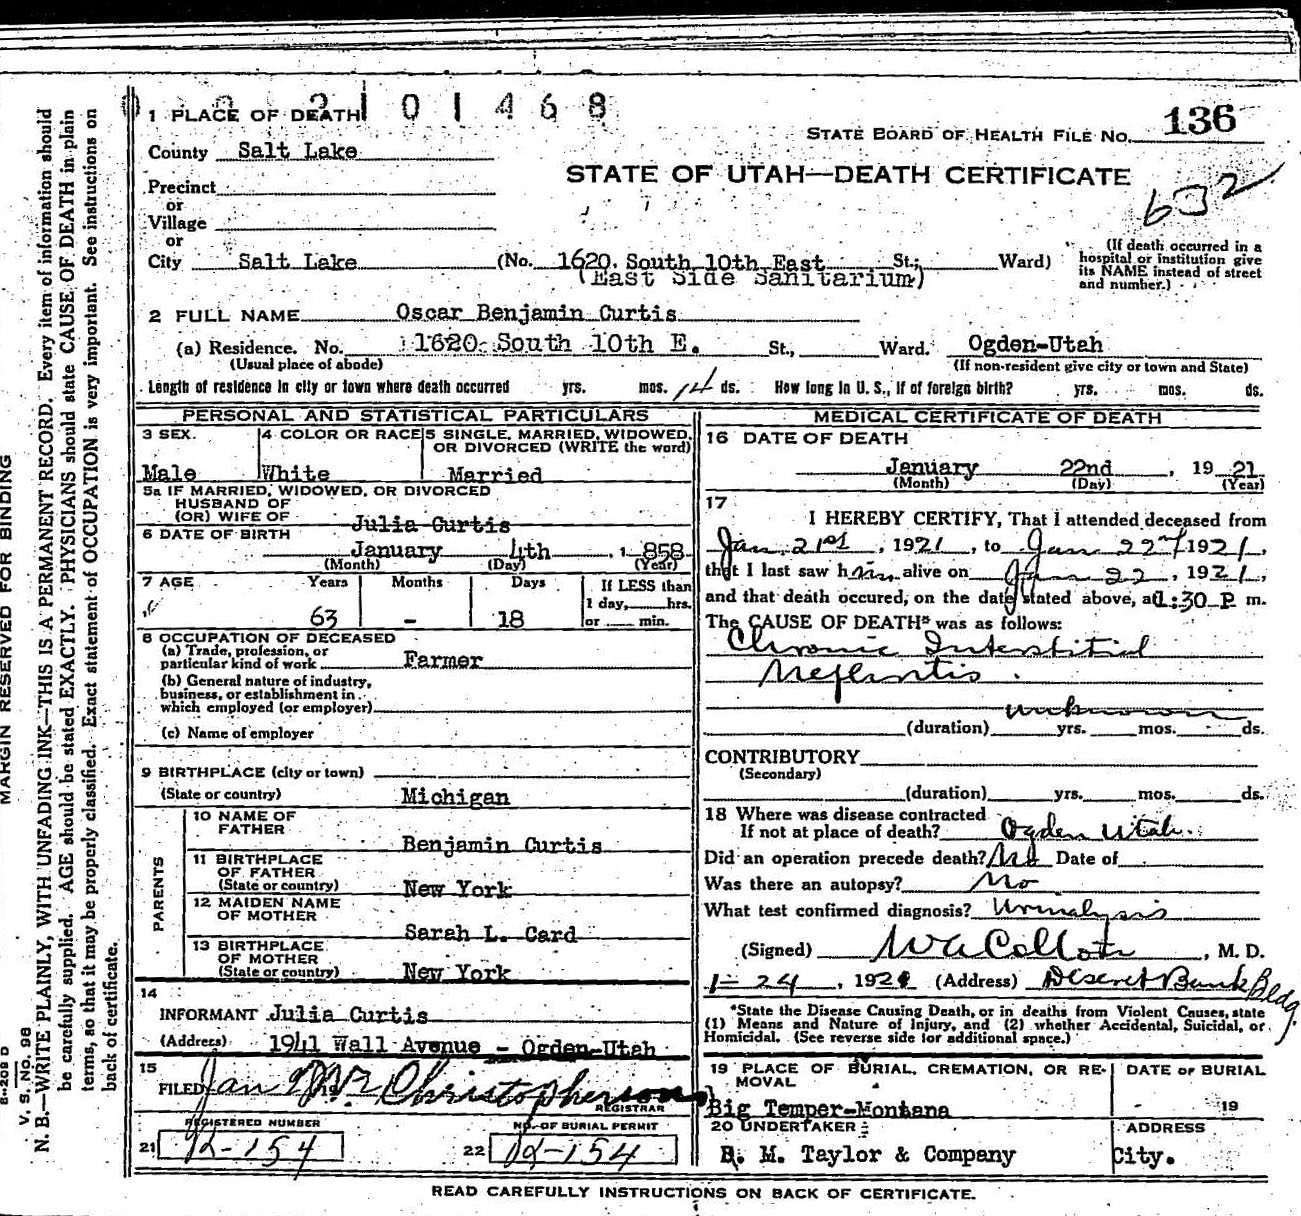 2101468
1 PLACE OF DEATH
STATE BOARD OF HEALTH FILE NO. 136
County Salt Lake
STATE OF UTAH—DEATH CERTIFICATE
632
Precinct
or
Village
or
City Salt Lake (No. 1620 South 10th East St.; Ward)
(East Side Sanitarium)
(If death occurred in a
hospital or institution give
its NAME instead of street
and number.)
2 FULL NAME Oscar Benjamin Curtis
(a) Residence. No. 1620 South 10th E. St., Ward. Ogden-Utah
(Usual place of abode) (If non-resident give city or town and State)
Length of residence in city or town where death occurred yrs. mos. 14 ds. How long in U. S., if of foreign birth? yrs. mos. ds.
PERSONAL AND STATISTICAL PARTICULARS
3 SEX. 4 COLOR OR RACE 5 SINGLE, MARRIED, WIDOWED,
OR DIVORCED (WRITE the word)
Male White Married
5a IF MARRIED, WIDOWED, OR DIVORCED
HUSBAND OF
(OR) WIFE OF Julia Curtis
6 DATE OF BIRTH
January 4th , 1 858
(Month) (Day) (Year)
7 AGE Years Months Days If LESS than
1 day, hrs.
63 - 18 or min.
8 OCCUPATION OF DECEASED
(a) Trade, profession, or
particular kind of work Farmer
(b) General nature of industry,
business, or establishment in
which employed (or employer)
(c) Name of employer
9 BIRTHPLACE (city or town)
(State or country) Michigan
PARENTS
10 NAME OF
FATHER
Benjamin Curtis
11 BIRTHPLACE
OF FATHER
(State or country) New York
12 MAIDEN NAME
OF MOTHER
Sarah L. Card
13 BIRTHPLACE
OF MOTHER
(State or country) New York
14
INFORMANT Julia Curtis
(Address) 1941 Wall Avenue - Ogden-Utah
15
FILED Jan Christopherson
REGISTRAR
REGISTERED NUMBER NO. OF BURIAL PERMIT
21 R-154 22 R-154
MEDICAL CERTIFICATE OF DEATH
16 DATE OF DEATH
January 22nd , 19 21
(Month) (Day) (Year)
17
I HEREBY CERTIFY, That I attended deceased from
Jan. 21st , 1921 , to Jan 22nd 1921,
that I last saw him alive on Jan 22 , 1921,
and that death occured, on the date stated above, at 1:30 P m.
The CAUSE OF DEATH* was as follows:
Chronic Interstitial
Nefhritis.
unknown
(duration) yrs. mos. ds.
CONTRIBUTORY
(Secondary)
(duration) yrs. mos. ds.
18 Where was disease contracted
If not at place of death? Ogden Utah.
Did an operation precede death? No Date of
Was there an autopsy? No
What test confirmed diagnosis? Urinalysis
(Signed) , M. D.
1-24 , 1921 (Address) Deseret Bank Bldg.
*State the Disease Causing Death, or in deaths from Violent Causes, state
(1) Means and Nature of Injury, and (2) whether Accidental, Suicidal, or
Homicidal. (See reverse side for additional space.)
19 PLACE OF BURIAL, CREMATION, OR RE-
MOVAL
DATE OF BURIAL
Big Temper-Montana 19
20 UNDERTAKER ADDRESS
B. M. Taylor & Company City.
READ CAREFULLY INSTRUCTIONS ON BACK OF CERTIFICATE.
MARGIN RESERVED FOR BINDING
V. S. No. 98
N. B.—WRITE PLAINLY, WITH UNFADING INK—THIS IS A PERMANENT RECORD. Every item of information should
be carefully supplied. AGE should be stated EXACTLY. PHYSICIANS should state CAUSE OF DEATH in plain
terms, so that it may be properly classified. Exact statement of OCCUPATION is very important. See instructions on
back of certificate.